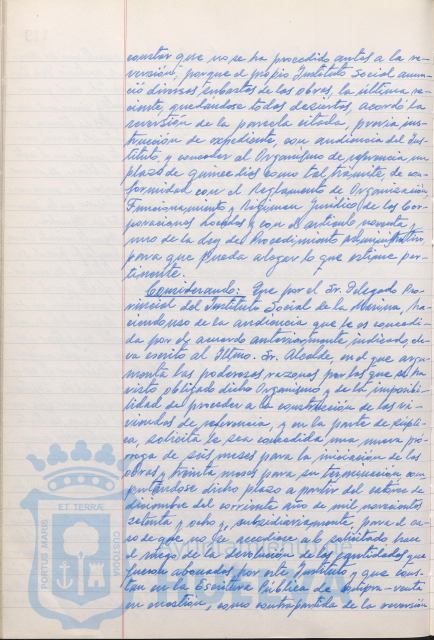 constar que no se ha procedido antes a la re-
versión, porque el propio Instituto Social anun-
ció diversas subastas de las obras, la última re-
ciente, quedándose todas desiertas, acordó la
reversión de la parcela citada, previa ins-
trucción de expediente, con audiencia del Ins-
tituto, y conceder al Organismo de referencia un
plazo de quince días como tal trámite, de con-
formidad con el Reglamento de Organización,
Funcionamiento y Régimen Jurídico de las Cor-
poraciones Locales y con el artículo noventa y
uno de la Ley de Procedimiento Administrativo
para que pueda alegar lo que estime per-
tinente.
Considerando: Que por el Sr. Delegado Pro-
vincial del Instituto Social de la Marina, ha-
ciendo uso de la audiencia que le es concedi-
da por el acuerdo anteriormente indicado, ele-
va escrito al Iltmo. Sr. Alcalde, en el que argu-
menta las poderosas razones por las que se ha
visto obligado dicho Organismo y de la imposibi-
lidad de proceder a la construcción de las vi-
viendas de referencia, y en la parte de súpli-
ca, solicita le sea concedida una nueva pró-
rroga de seis meses para la iniciación de las
obras y treinta meses para su terminación com-
putándose dicho plazo a partir del catorce de
diciembre del corriente año de mil novecientos
setenta y ocho y, subsidiariamente, para el ca-
so de que no se accediese a lo solicitado hace
el ruego de la devolución de las cantidades que
fueron abonadas por este Instituto y que cons-
tan en la Escritura Pública de compra-venta
en cuestión, como contrapartida de la reversión
PORTUS MARIS
ET TERRAE
CUSTODIA